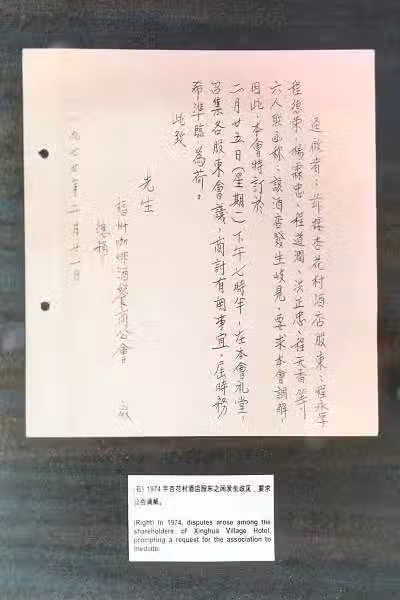 逕啟者：前接杏花村酒店股東：程永
程德榮、楊霖忠、程道潤、洪正忠、程天香等
六人聯函称：該酒店發生歧見，要求本會調解，
因此，本會特訂於
二月廿五日（星期一）下午七時半，在本會礼堂，
召集各股東會議，商討有關事宜，屆時務
希準臨為荷。
此致
先生
福州咖啡酒餐商公會 啟
一九七四年二月廿一日
(右) 1974 年杏花村酒店股东之间发生歧见，要求
公会调解。
(Right) In 1974, disputes arose among the
shareholders of Xinghua Village Hotel,
prompting a request for the association to
mediate.